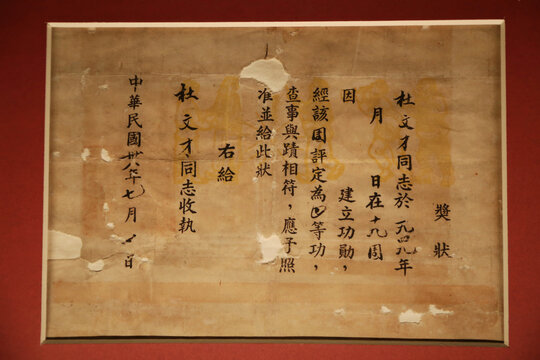 獎狀
杜文才同志於一九四九年
月 日在十九團
因 建立功勛，
經該團評定為四等功，
查事與蹟相符，應予照
准並給此狀
右給
杜文才同志收執
中華民國卅八年七月 日